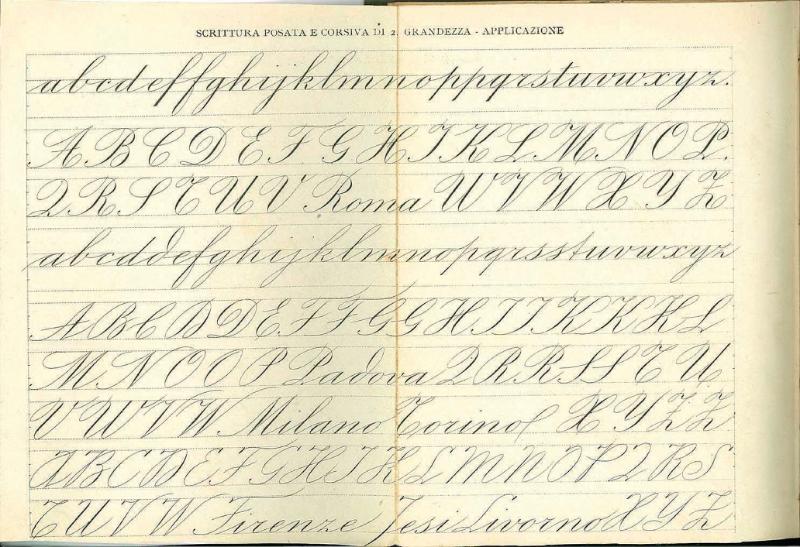 SCRITTURA POSATA E CORSIVA DI 2. GRANDEZZA - APPLICAZIONE
abcdeffghijklmnoppqrstuvwxyz.
A B C D E F G H I K L M N O P.
Q R S T U V Roma U V W X Y Z
abcddefghijklmnopqrsstuvwxyz
A B C D D E F F G G H I I K K K L
M N O O P Padova Q R R S S T U
V W V W Milano Torino X Y Z Z
A B C D E F G H I K L M N O P Q R S
T U V W Firenze Jesi Livorno X Y Z